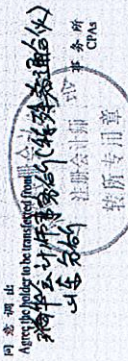 同意调出
Agree the holder to be transferred from
瑞华会计师事务所(特殊普通合伙)
山东分所
事务所
CPAs
注册会计师
转所专用章